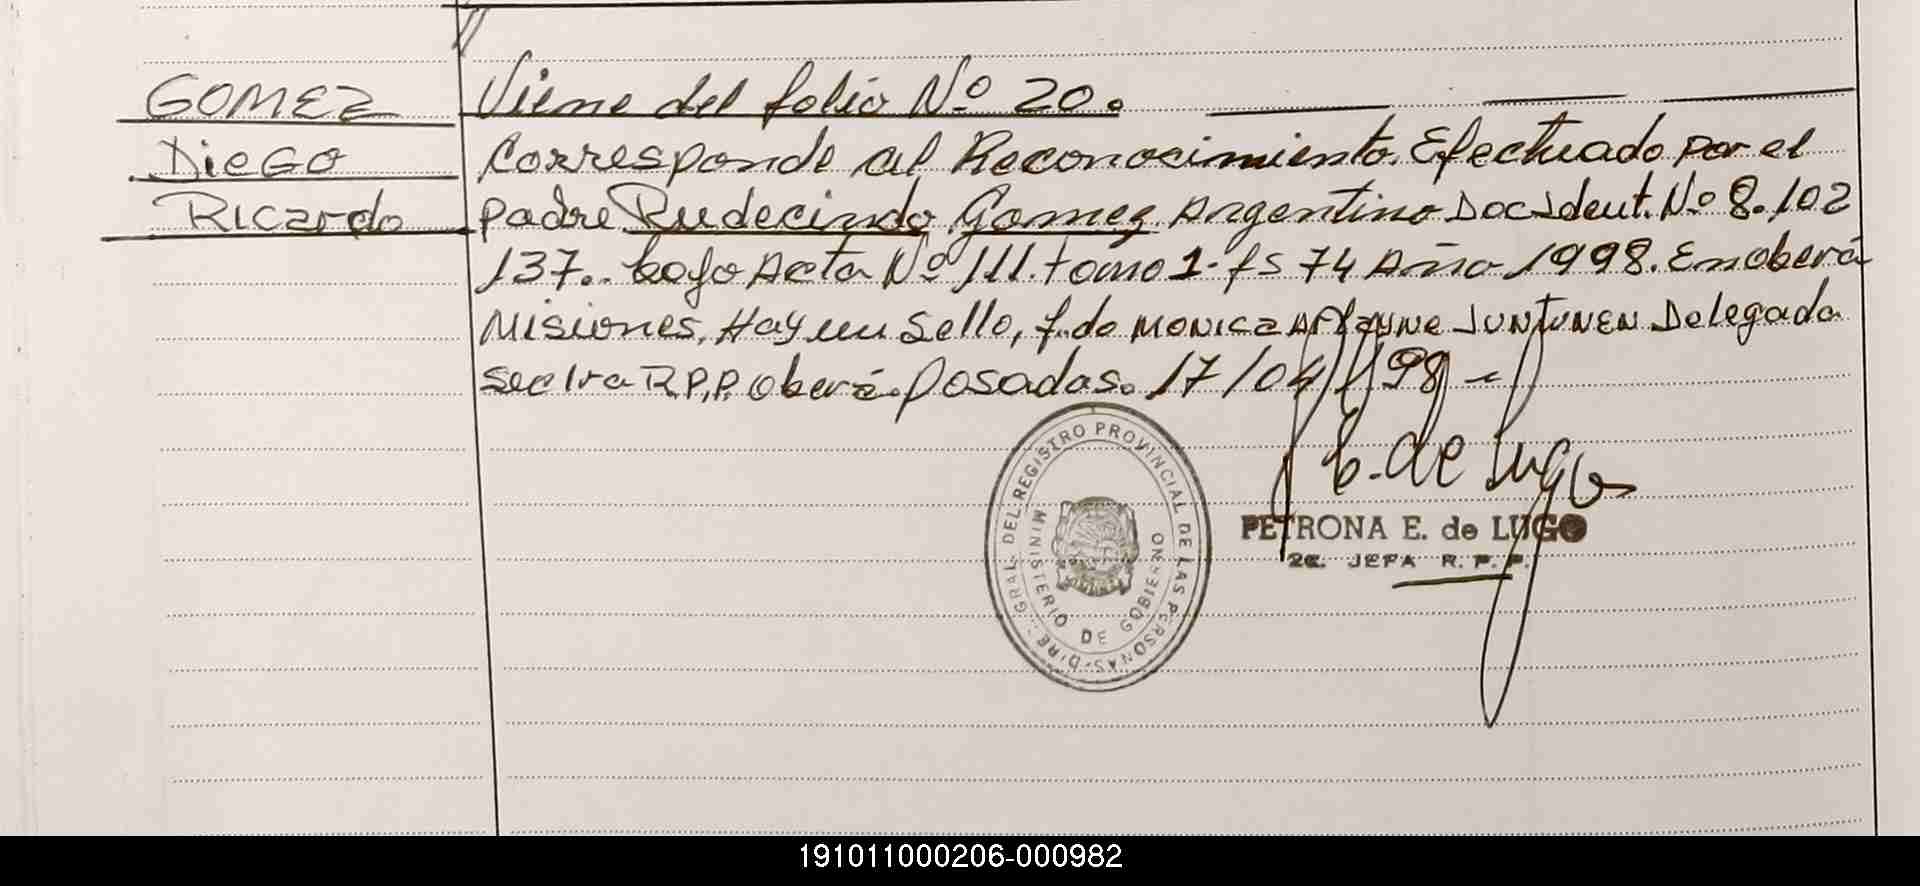 GOMEZ Viene del folio Nº 20.
DIEGO Corresponde al Reconocimiento. Efectuado por el
RICARDO padre Rudecindo Gomez Argentino Doc Ident. Nº 8.102
137.. bajo Acta Nº 111. tomo 1. fs 74 Año 1998. En oberá
Misiones, Hay un Sello, f.do MONICA JUNTUNEN Delegada
R.P.P. Oberá. Posadas. 17/04/98
P. E. de Lugo
PETRONA E. de LUGO
2a. JEFA R. P. P.
DIRE. GRAL. DEL REGISTRO PROVINCIAL DE LAS PERSONAS-
MINISTERIO DE GOBIERNO
191011000206-000982